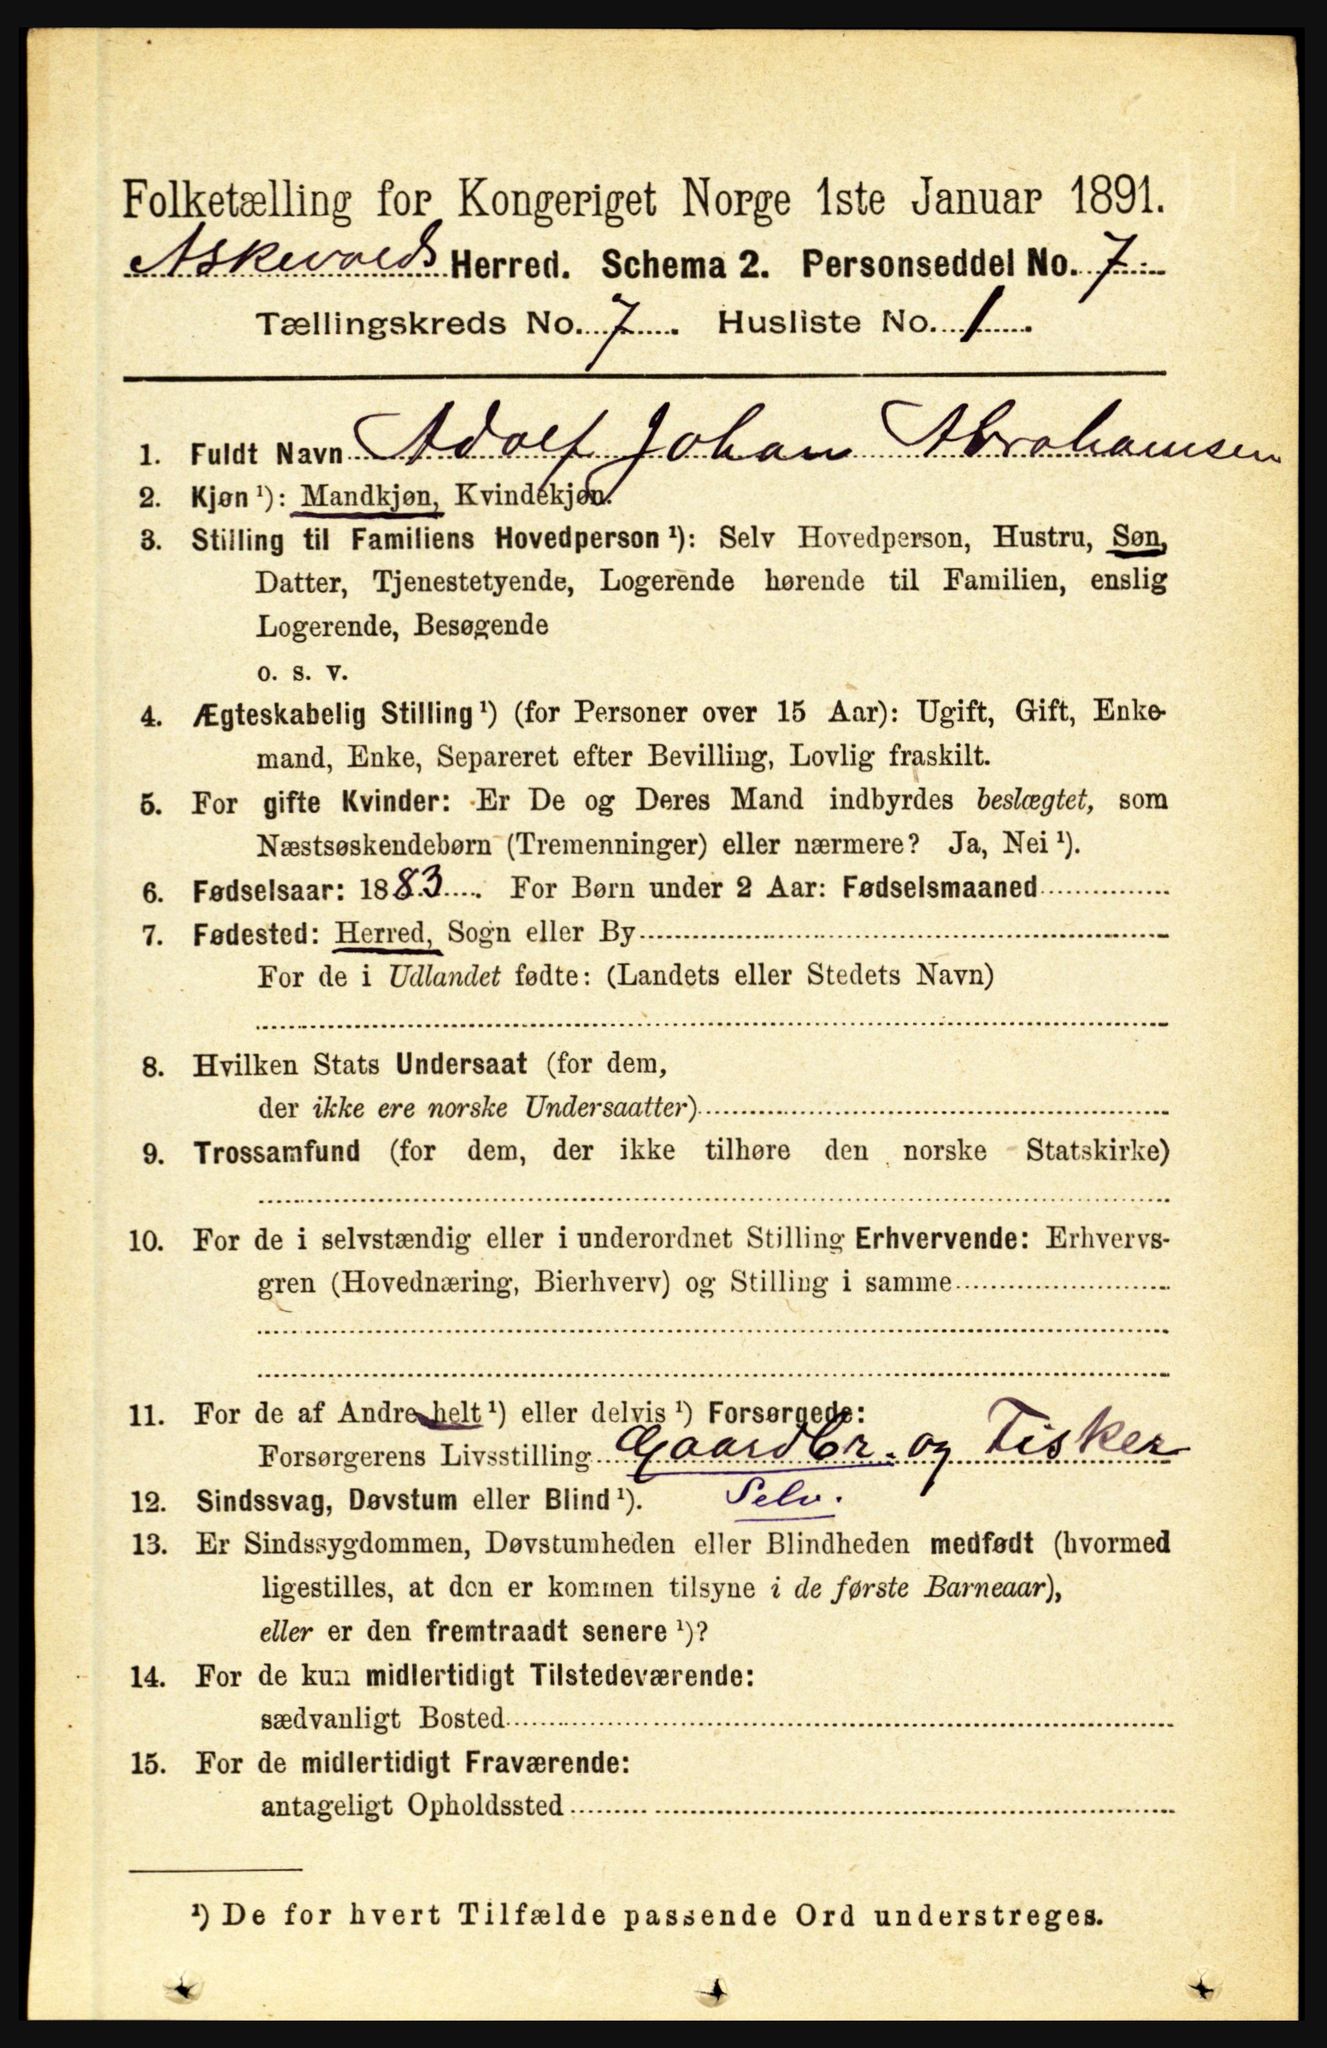 Folketælling for Kongeriget Norge 1ste Januar 1891.
Askevolds Herred. Schema 2. Personseddel No. 7
Tællingskreds No. 7. Husliste No. 1.
1. Fuldt Navn Adolf Johan Abrahamsen
2. Kjøn ¹): Mandkjøn, Kvindekjøn.
3. Stilling til Familiens Hovedperson ¹): Selv Hovedperson, Hustru, Søn,
Datter, Tjenestetyende, Logerende hørende til Familien, enslig
Logerende, Besøgende
o. s. v.
4. Ægteskabelig Stilling ¹) (for Personer over 15 Aar): Ugift, Gift, Enke-
mand, Enke, Separeret efter Bevilling, Lovlig fraskilt.
5. For gifte Kvinder: Er De og Deres Mand indbyrdes beslægtet, som
Næstsøskendebørn (Tremenninger) eller nærmere? Ja, Nei ¹).
6. Fødselsaar: 1883. For Børn under 2 Aar: Fødselsmaaned
7. Fødested: Herred, Sogn eller By
For de i Udlandet fødte: (Landets eller Stedets Navn)
8. Hvilken Stats Undersaat (for dem,
der ikke ere norske Undersaatter)
9. Trossamfund (for dem, der ikke tilhøre den norske Statskirke)
10. For de i selvstændig eller i underordnet Stilling Erhvervende: Erhvervs-
gren (Hovednæring, Bierhverv) og Stilling i samme
11. For de af Andre helt ¹) eller delvis ¹) Forsørgede:
Forsørgerens Livsstilling Gaardbr. og Fisker
12. Sindssvag, Døvstum eller Blind ¹). Selv.
13. Er Sindssygdommen, Døvstumheden eller Blindheden medfødt (hvormed
ligestilles, at den er kommen tilsyne i de første Barneaar),
eller er den fremtraadt senere ¹)?
14. For de kun midlertidigt Tilstedeværende:
sædvanligt Bosted
15. For de midlertidigt Fraværende:
antageligt Opholdssted
¹) De for hvert Tilfælde passende Ord understreges.